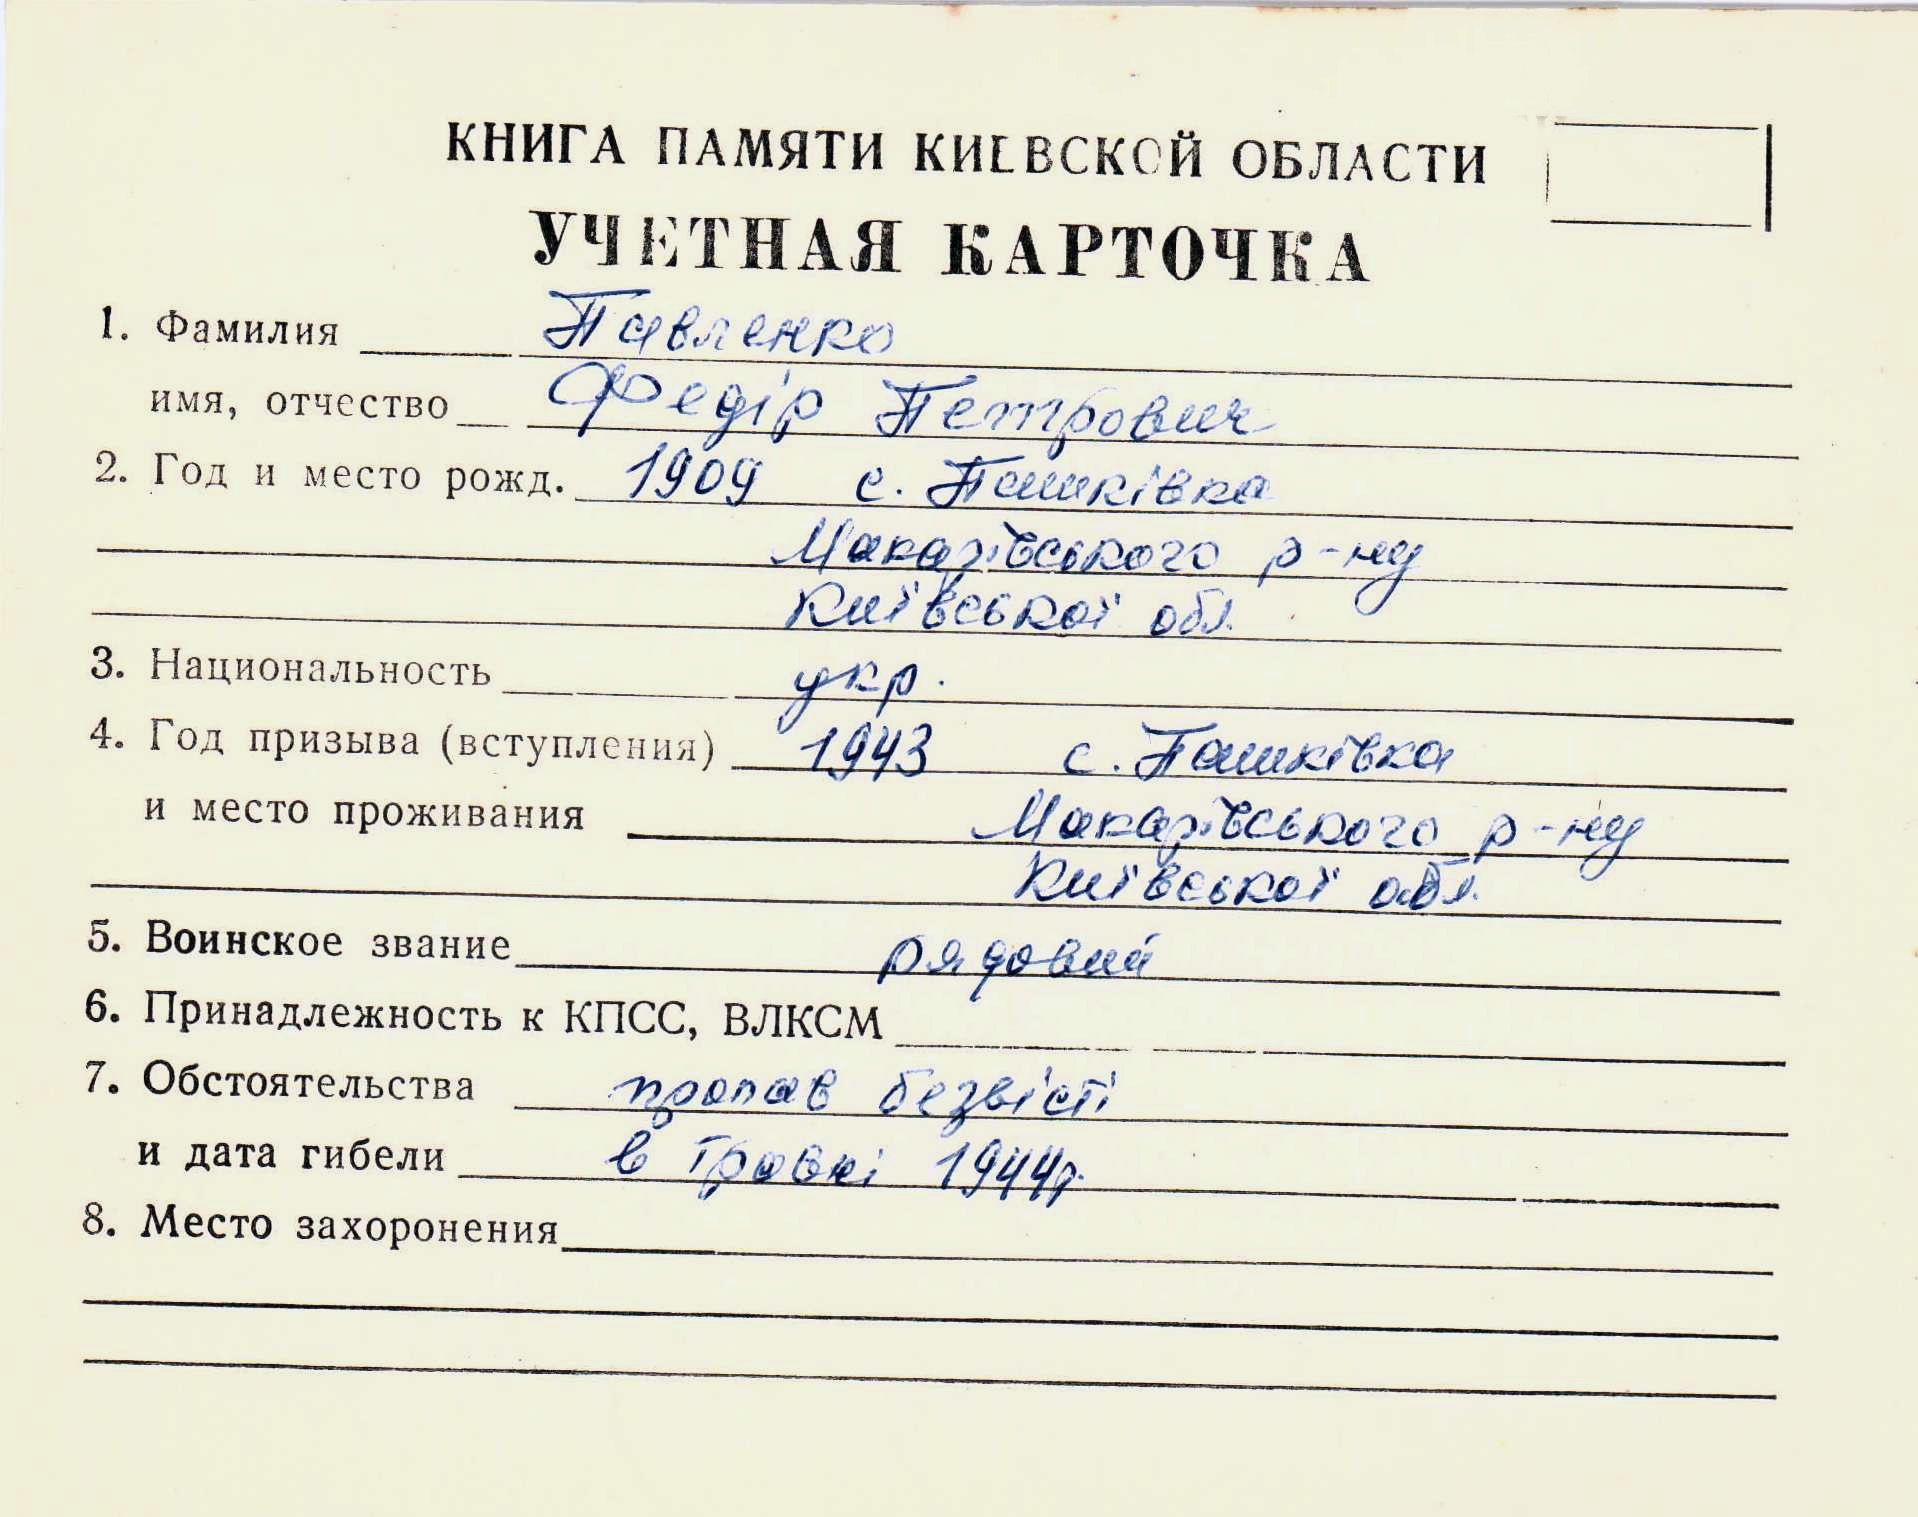 КНИГА ПАМЯТИ КИЕВСКОЙ ОБЛАСТИ
УЧЕТНАЯ КАРТОЧКА
1. Фамилия Павленко
имя, отчество Федір Петрович
2. Год и место рожд. 1909 с. Пашківка
Макарівського р-ну
Київської обл.
3. Национальность укр.
4. Год призыва (вступления) 1943 с. Пашківка
и место проживания Макарівського р-ну
Київської обл.
5. Воинское звание рядовий
6. Принадлежность к КПСС, ВЛКСМ
7. Обстоятельства пропав безвісті
и дата гибели в травні 1944р.
8. Место захоронения